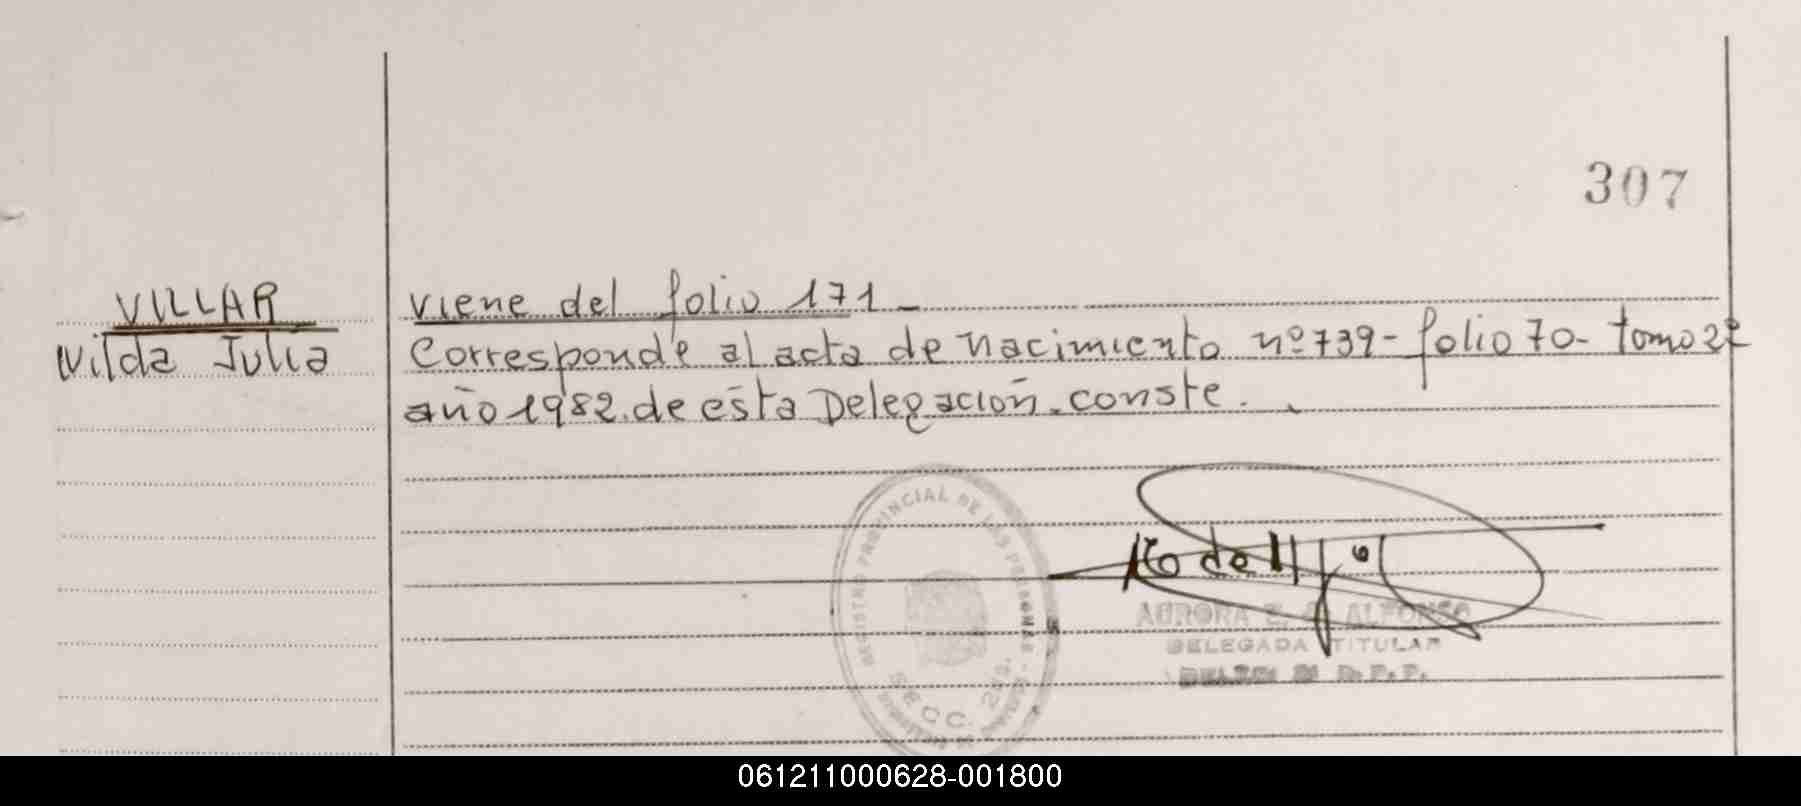 307
VILLAR
Nilda Julia
viene del folio 171-
Corresponde al acta de nacimiento nº 739- folio 70- tomo 2º
año 1982. de esta Delegación. conste.
REGISTRO PROVINCIAL DE LAS PERSONAS
SECC. 2da.
AURORA E. ALFONSO
DELEGADA TITULAR
R.P.P.
061211000628-001800